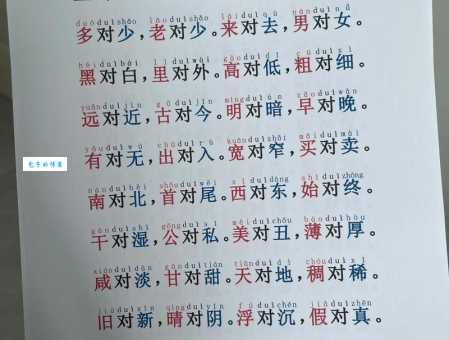 duō duì shǎo lǎo duì shào lái duì qù nán duì nǚ
多对少，老对少。来对去，男对女。
hēi duì bái lǐ duì wài gāo duì dī cū duì xì
黑对白，里对外。高对低，粗对细。
yuǎn duì jìn gǔ duì jīn míng duì àn zǎo duì wǎn
远对近，古对今。明对暗，早对晚。
yǒu duì wú chū duì rù kuān duì zhǎi mǎi duì mài
有对无，出对入。宽对窄，买对卖。
包子的博客
nán duì běi shǒu duì wěi xī duì dōng shǐ duì zhōng
南对北，首对尾。西对东，始对终。
gān duì shī gōng duì sī měi duì chǒu báo duì hòu
干对湿，公对私。美对丑，薄对厚。
xián duì dàn gān duì tián tiān duì dì chóu duì xī
咸对淡，甘对甜。天对地，稠对稀。
jiù duì xīn qíng duì yīn fú duì chén jiǎ duì zhēn
旧对新，晴对阴。浮对沉，假对真。